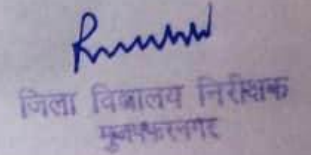 जिला विद्यालय निरीक्षक
मुजफ्फरनगर